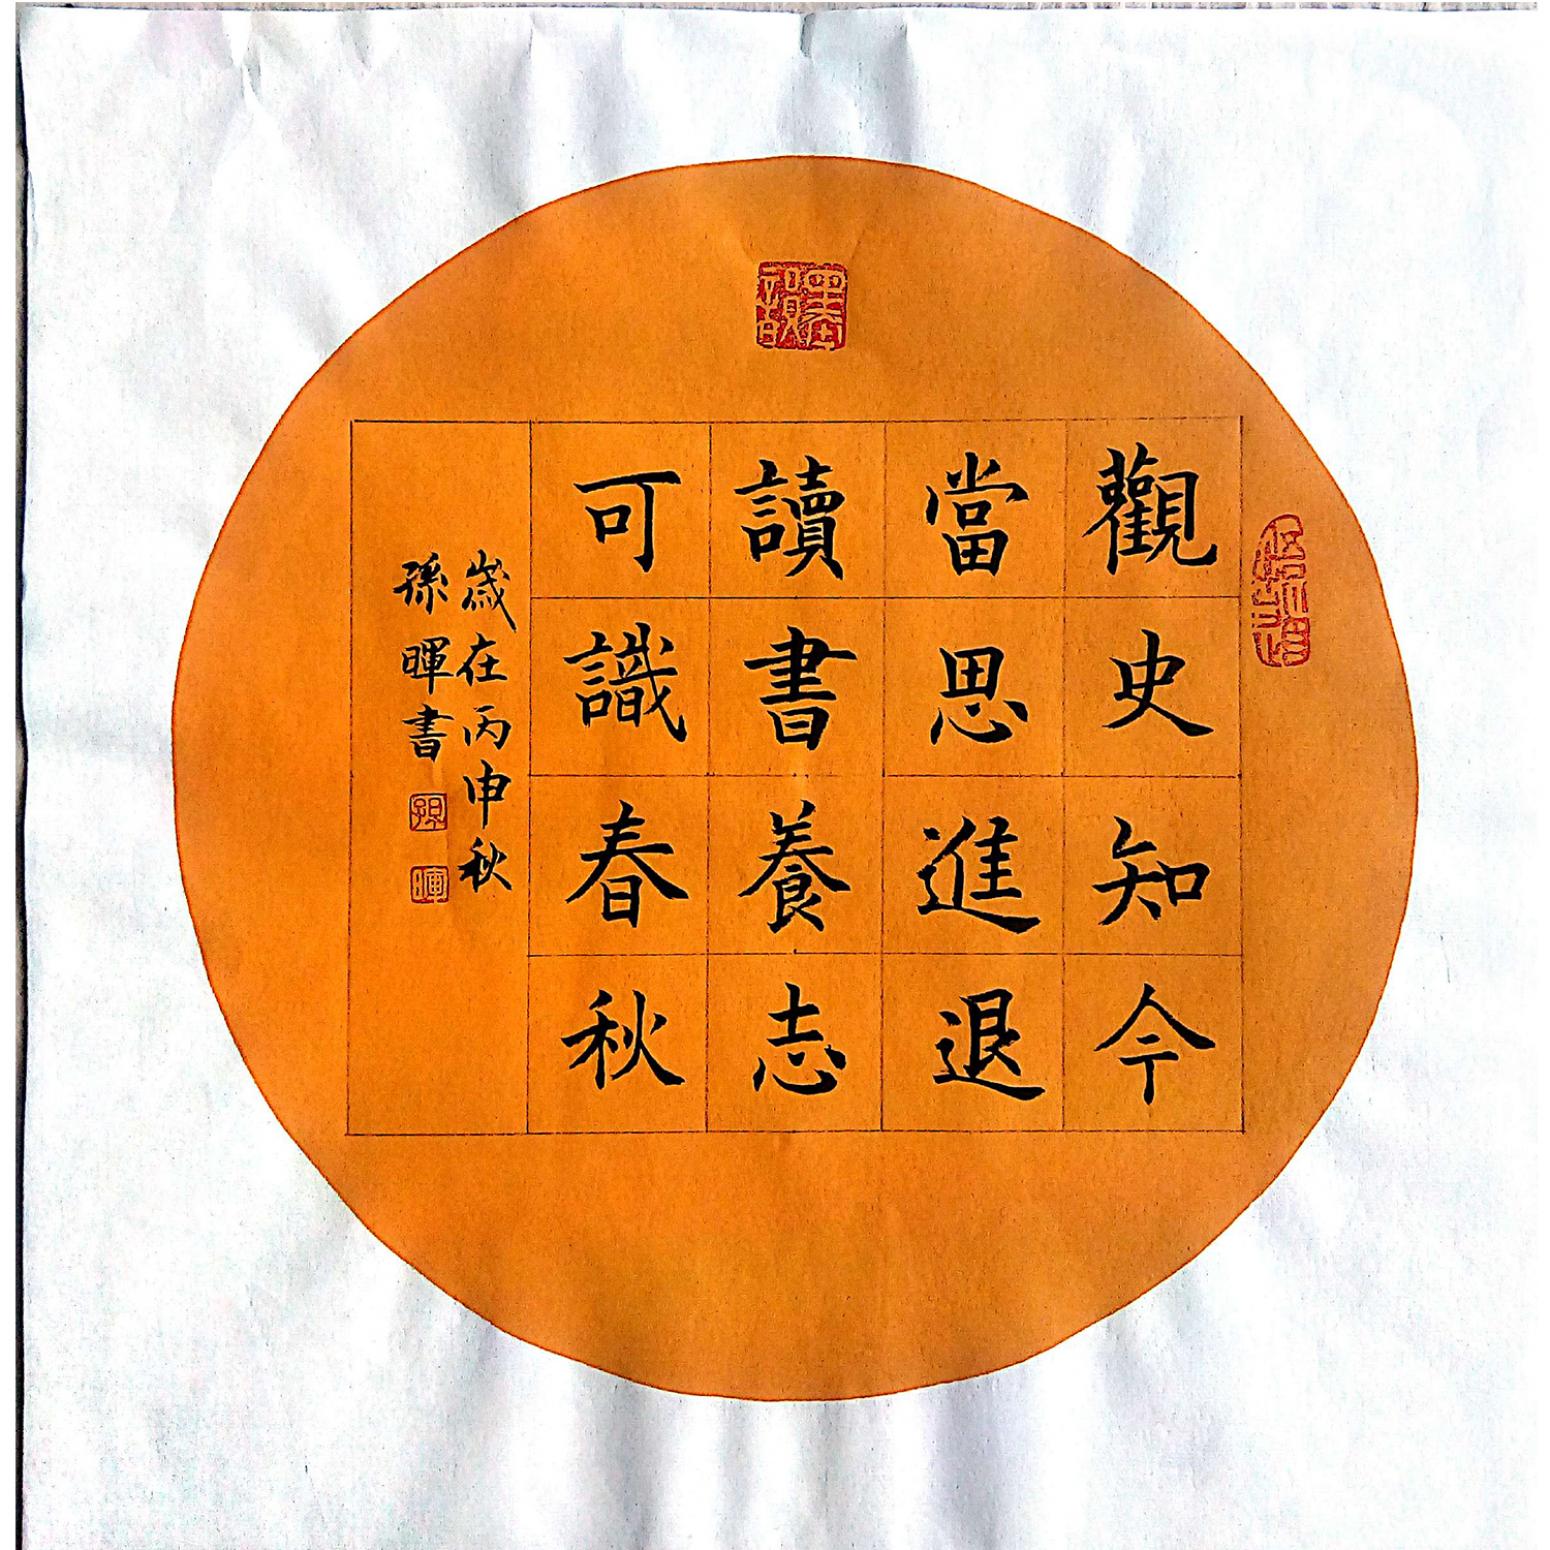 觀史知今
當思進退
讀書養志
可識春秋
歲在丙申秋
孫暉書